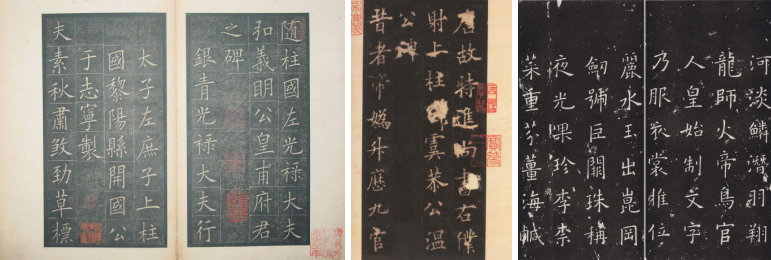 隨柱國左光禄大夫
弘義明公皇甫府君
之碑
銀青光禄大夫行
太子左庶子上柱
國黎陽縣開國公
于志寧製
夫素秋肅煞勁草標
唐故特進尚書右僕
射上柱國虞恭公温
公碑
昔者帝媯升歷九官
河淡鱗潛羽翔
龍師火帝鳥官
人皇始制文字
乃服衣裳推位
麗水玉出崑岡
劒號巨闕珠稱
夜光果珍李柰
菜重芥薑海鹹